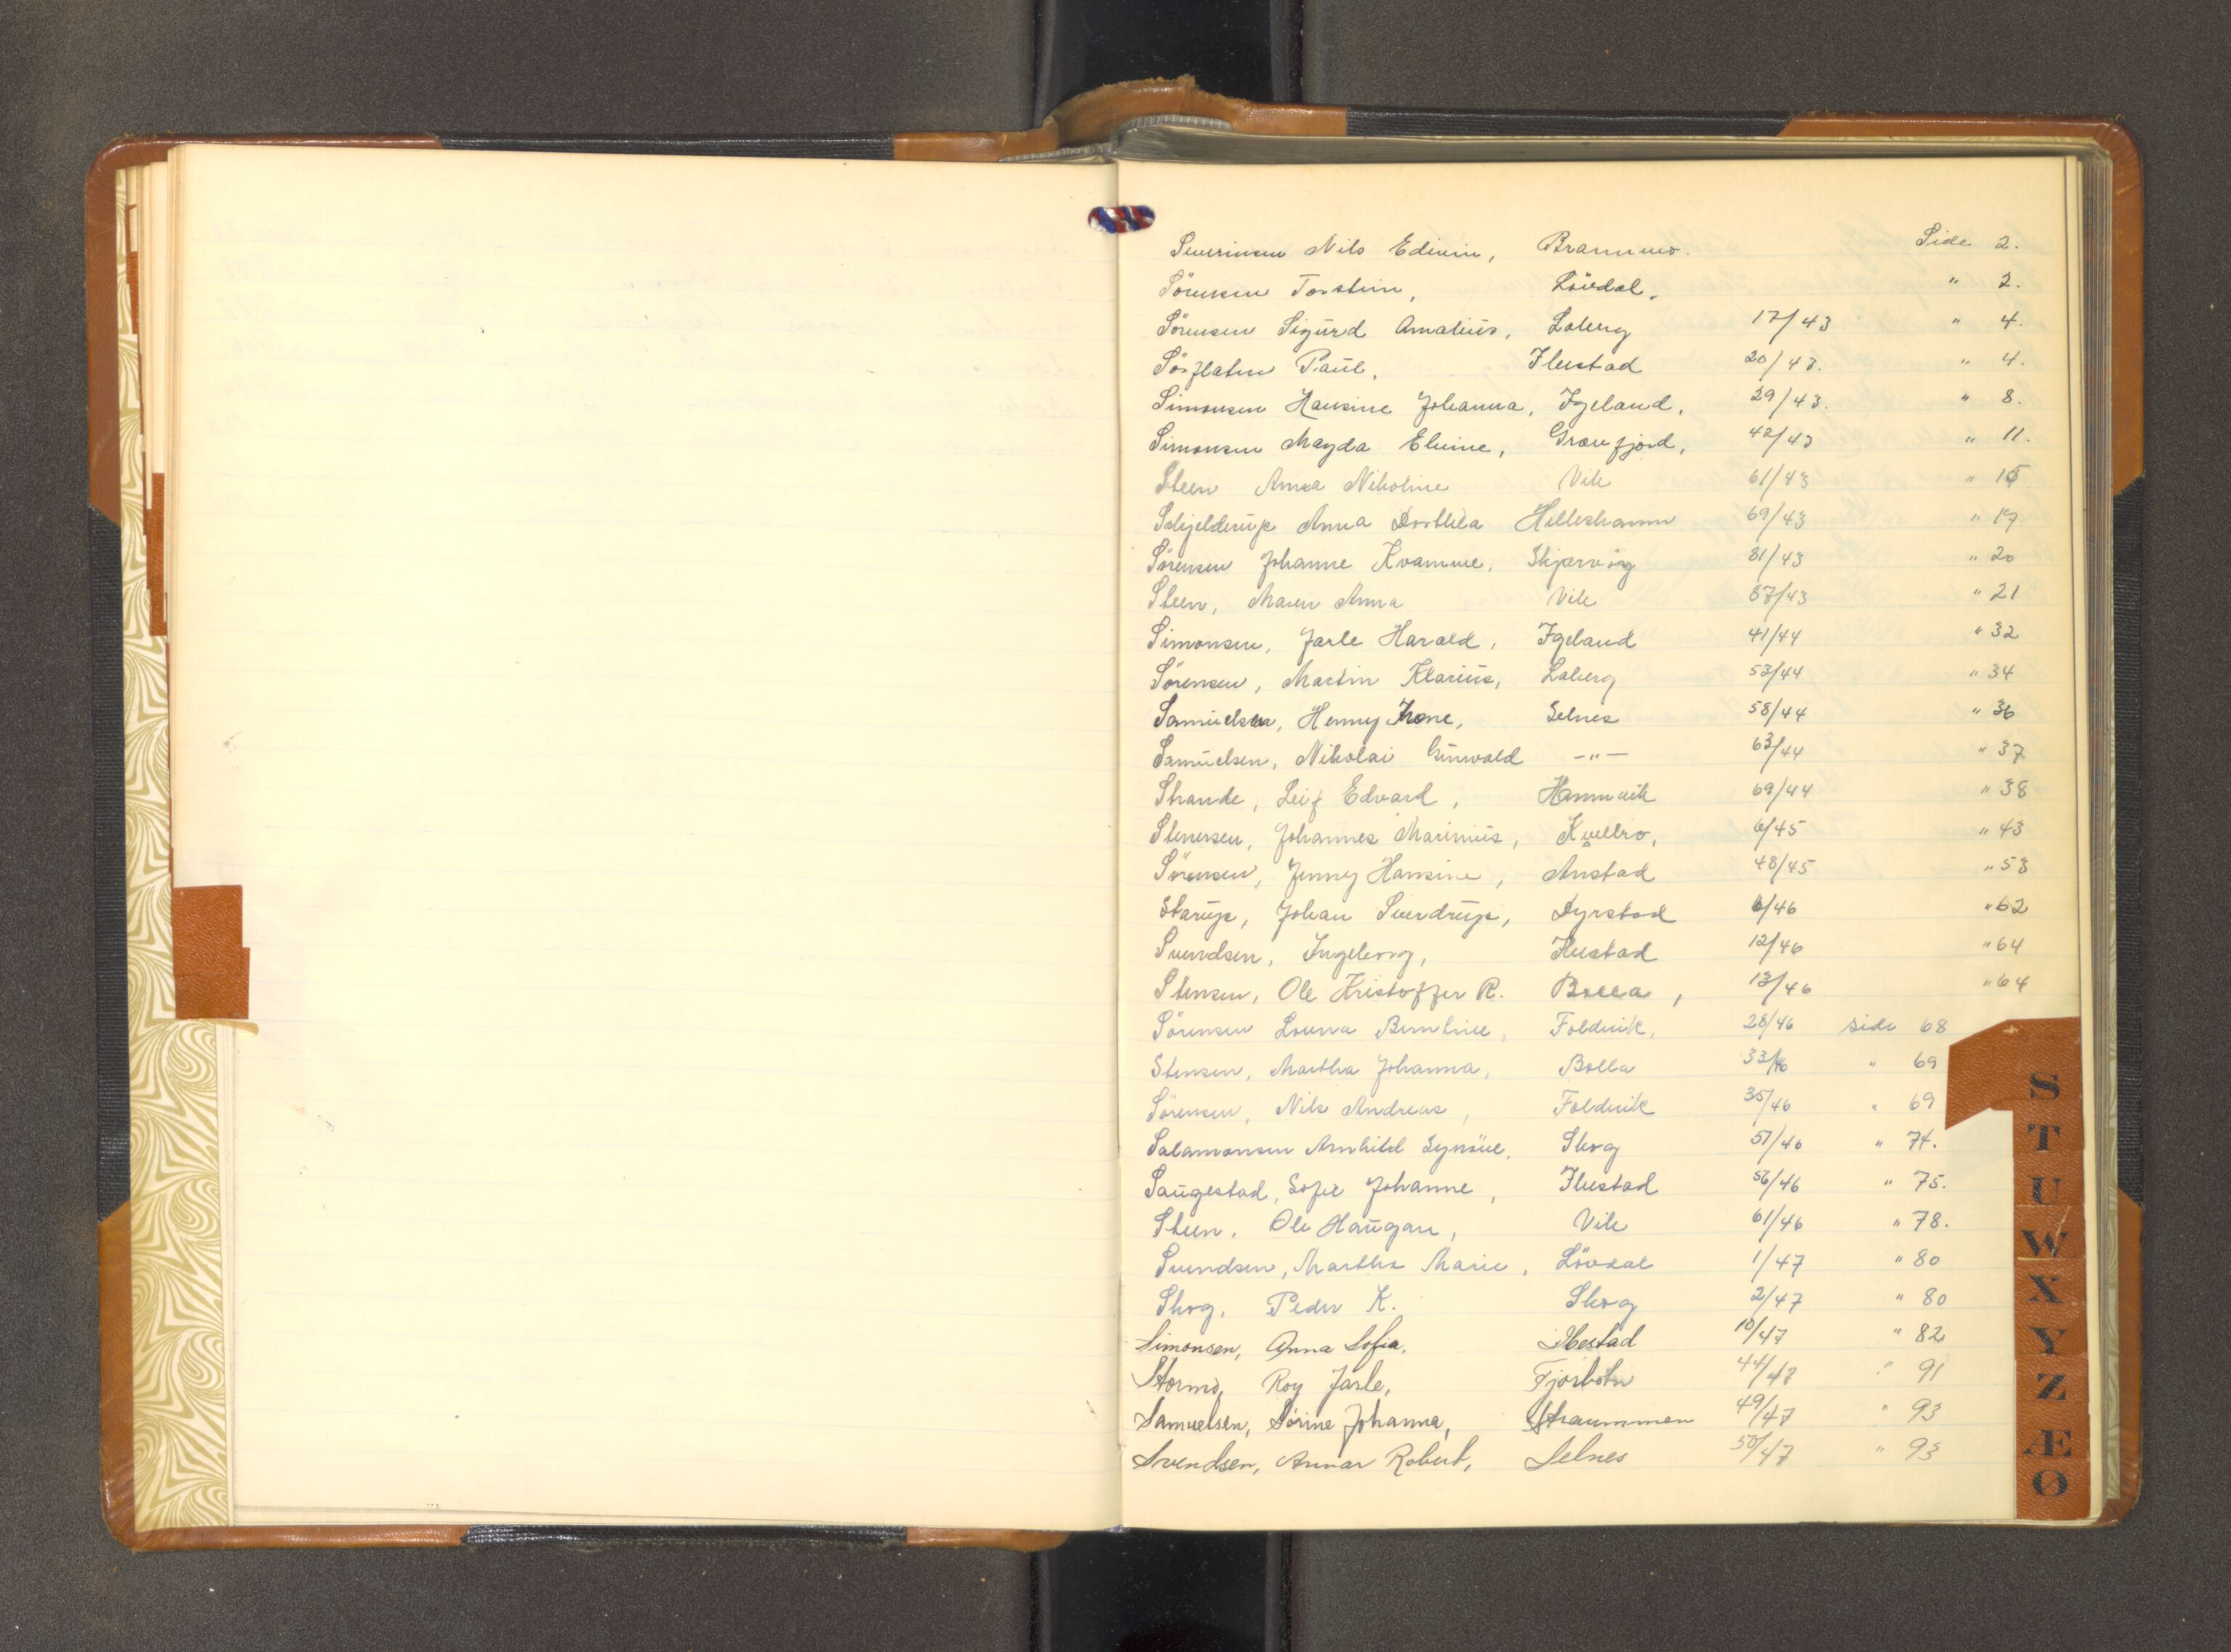 Severinsen Nils Edivin, Brammo. Side 2.
Sörensen Torstein, Lövdal. " 2.
Sörensen Sigurd Amalius, Laberg 17/43 " 4.
Sörflaten Paul, Ilustad 20/43. " 4.
Simonsen Hansine Johanna, Igeland, 29/43. " 8.
Simonsen Magda Elvine, Grovfjord, 42/43 " 11.
Steen Anna Nikoline Vik 61/43 " 15
Schjelderup Anna Dorthea Hilleshamn 69/43 " 17
Sörensen Johanne Kvamme, Skjærvög 81/43 " 20
Steen, Maren Anna Vik 87/43 " 21
Simonsen, Jarle Harald, Igeland 41/44 " 32
Sörensen, Martin Klarius, Laberg 53/44 " 34
Samuelsen, Henny Irene, Selnes 58/44 " 36
Samuelsen, Nikolai Gunvald -"- 63/44 " 37
Strande, Leif Edvard, Hamnvik 69/44 " 38
Stenersen, Johannes Marinius, Kvelbo, 6/45 " 43
Sörensen, Jenny Hansine, Ånstad 48/45 " 53
Starup, Johan Sverdrup, Dyrstad 6/46 " 62
Svendsen, Ingeborg, Ilustad 12/46 " 64
Stensen, Ole Kristoffer R. Bolla, 13/46 " 64
Sörensen Lovna Berntine, Foldvik, 28/46 side 68
Stensen, Martha Johanna, Bolla 33/46 " 69
Sörensen, Nils Andreas, Foldvik 35/46 " 69
Salamonsen Arnhild Synöve, Skog 51/46 " 74.
Saugestad, Sofie Johanne, Ilustad 56/46 " 75.
Steen, Ole Haugan, Vik 61/46 " 78.
Svendsen, Martha Marie, Lövdal 1/47 " 80
Skog, Peder K. Skog 2/47 " 80
Simonsen, Anna Sofia, Ibestad 10/47 " 82
Stormo, Roy Jarle, Fjorbotn 44/47 " 91
Samuelsen, Sörine Johanna, Straummen 49/47 " 93
Svendsen, Annar Robert, Selnes 50/47 " 93
S
T
U
W
X
Y
Z
Æ
Ø